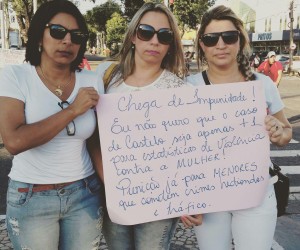 Chega de Impunidade!
Eu não quero que o caso
de Castelo seja apenas +1
para estatísticas de Violência
contra a MULHER!
Punição já para MENORES
que cometem crimes hediondos
e tráfico.